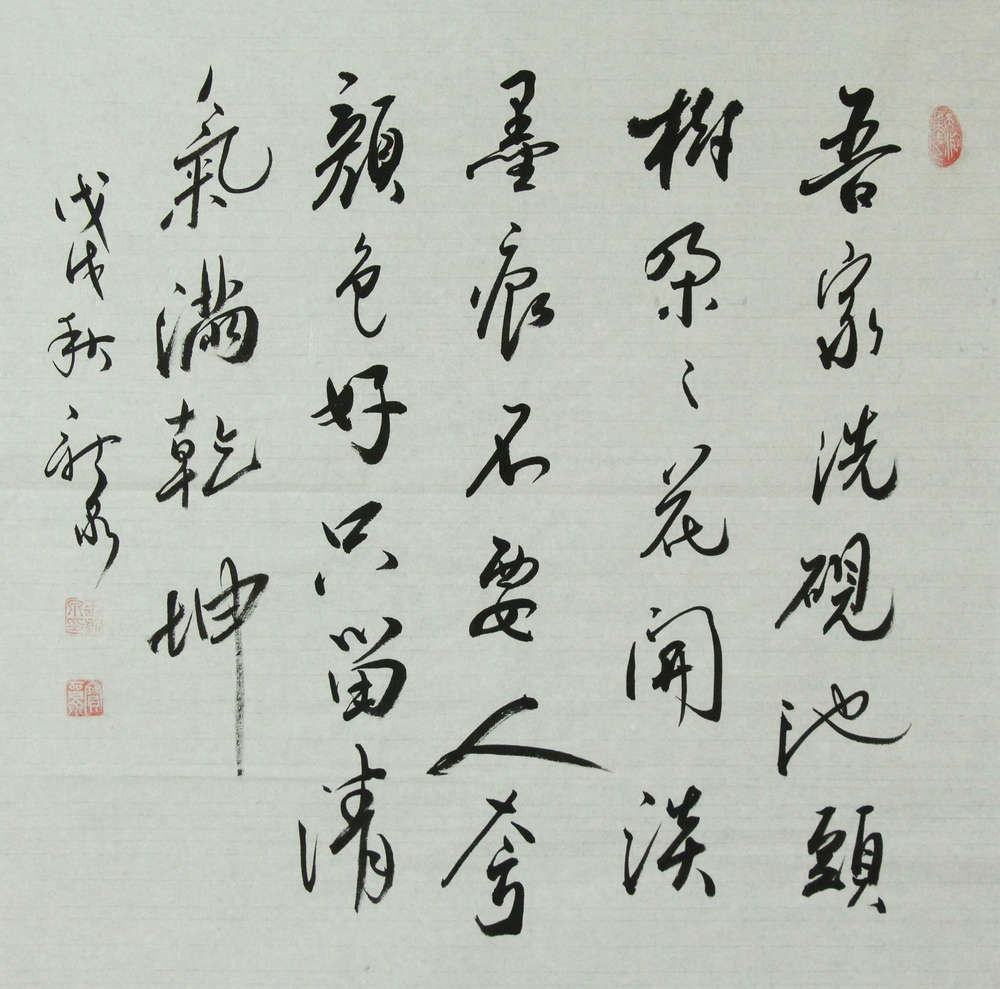 吾家洗硯池頭
樹朵々花開淡
墨痕不要人夸
顏色好只留清
氣滿乾坤
戊戌秋